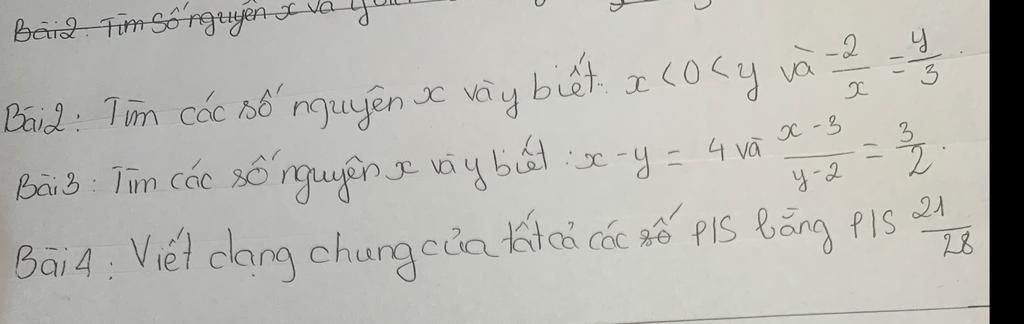 Bài2. Tìm số nguyên x và y
Bài2: Tìm các số nguyên x và y biết: x < 0 < y và -2/x = y/3.
Bài3: Tìm các số nguyên x và y biết: x - y = 4 và x-3/y-2 = 3/2.
Bài4: Viết dạng chung của tất cả các số P/S bằng P/S 21/28